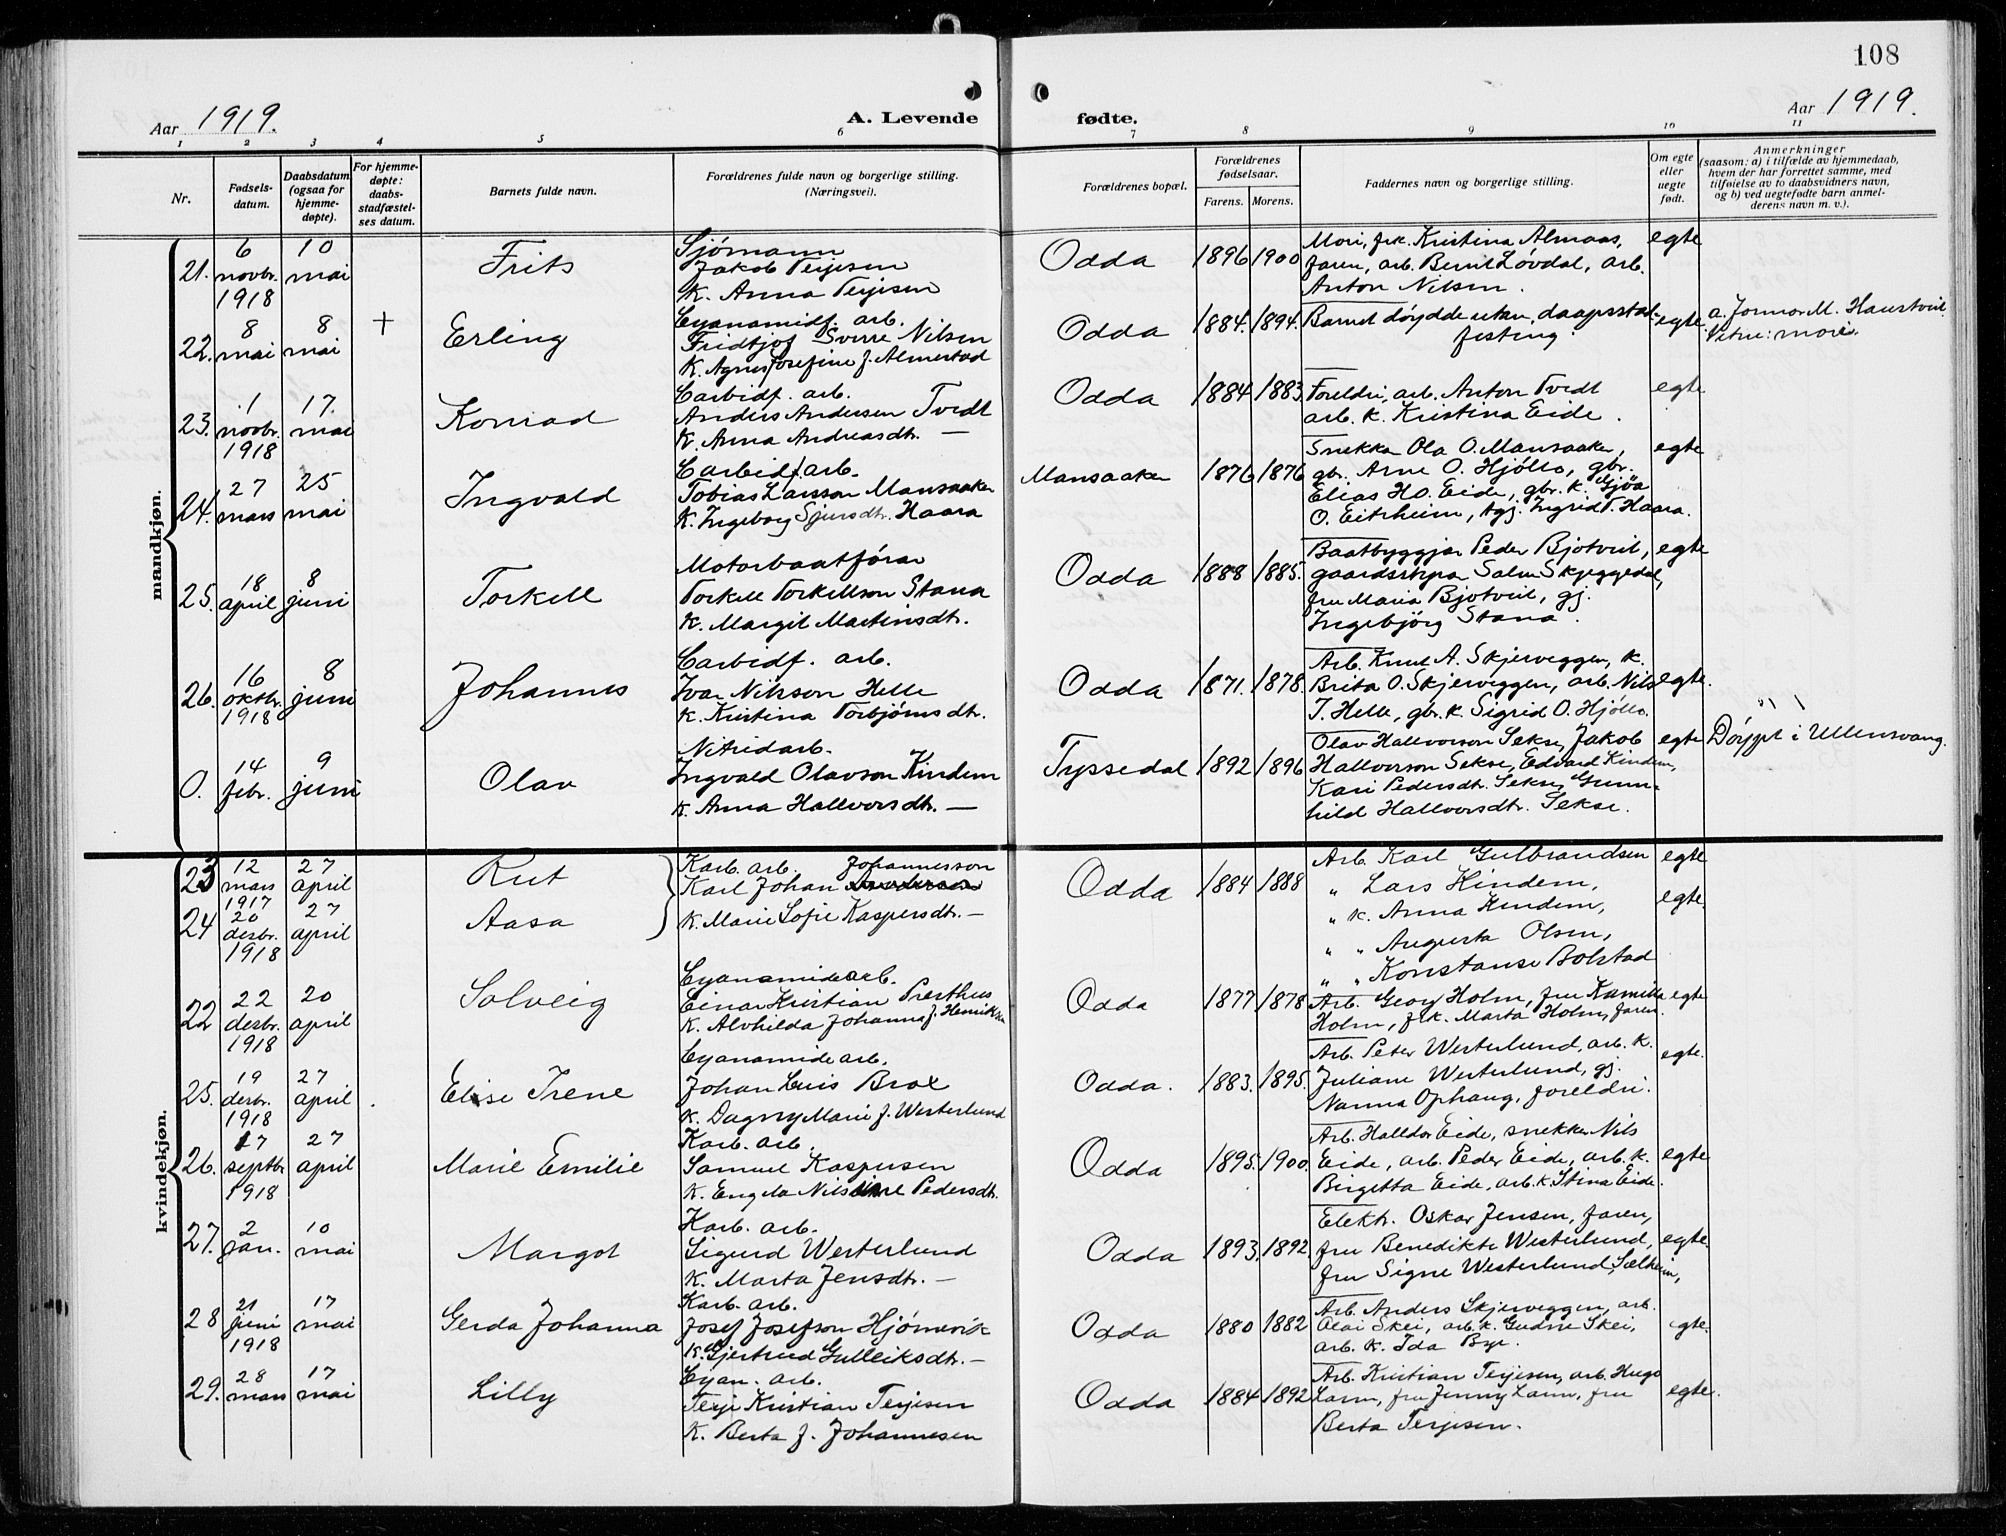 108
Aar 1919.
A. Levende
fødte.
Aar 1919.
1 2 3 4 5 6 7 8 9 10 11
Nr.
Fødsels-
datum.
Daabsdatum
(ogsaa for
hjemme-
døpte).
For hjemme-
døpte:
daabs-
stadfæstel-
ses datum.
Barnets fulde navn.
Forældrenes fulde navn og borgerlige stilling.
(Næringsvei).
Forældrenes bopæl.
Forældrenes
fødselsaar.
Farens. Morens.
Faddernes navn og borgerlige stilling.
Om egte
eller
uegte
født.
Anmerkninger
(saasom: a) i tilfælde av hjemmedaab,
hvem der har forrettet samme, med
tilføielse av to daabsvidners navn,
og b) ved uegtefødte barn anmel-
derens navn m. v.).
mandkjøn.
21.
6
novbr.
1918
10
mai
Frits
Sjómann
Jakob Terjesen
k. Anna Terjesen
Odda
1896 1900
Mori, frk. Kristina Almaas,
faren, arb. Bernt Lóvdal, arb.
Anton Nilsen.
egte
22.
8
mai
8
mai
+
Erling
Cyanamidf. arb.
Fridtjof Sverre Nilsen
k. Agnes Josefine f. Almestad
Odda
1884. 1894.
Barnet dóydde utan daapsstad-
festing
egte
a. Jormor M. Haustveit.
Vitne: mori.
23.
1
novbr.
1918
17.
mai
Konrad
Carbidf. arb.
Anders Andersen Tvedt
k. Anna Andreasdtr. —
Odda
1884 1883
Foreldri, arb. Anton Tvedt
arb. k. Kristina Eide.
egte
24.
27
mars
25
mai
Ingvald
Carbidf. arb.
Tobias Larsson Mansaaker
k. Ingeborg Sjursdtr. Haara
Mansaaker
1876 1876
Snekkar Ola O. Mansaaker,
gbr. Arne O. Hjóllo, gbr.
Elias Ho. Eide, gbr. k. Gjóa
O. Eitrheim, tgj. Ingrid T. Haara.
egte
25.
18
april
8
juni
Torkell
Motorbaatfórar
Torkell Torkellson Stana
k. Margit Martinsdtr.
Odda
1888 1885.
Baatbyggjar Peder Bjotveit,
gaardsstyra Salm. Skjeggedal,
fru Maria Bjotveit, gj.
Ingebjörg Stana.
egte
26.
16
oktbr.
1918
8
juni
Johannes
Carbidf. arb.
Ivar Nilsson Helle
k. Kristina Torbjórnsdtr.
Odda
1871. 1878.
Arb. Knut A. Skjerveggen, k.
Brita O. Skjerveggen, arb. Nils
I. Helle, gbr. k. Sigrid O. Hjóllo.
egte.
0.
14
febr.
9
juni
Olav
Nitridarb.
Ingvald Olavson Kindem
k. Anna Hallvorsdtr. —
Tyssedal
1892 1896
Olav Hallvorson Sekse, Jakob
Hallvorson Sekse, Edvard Kindem,
Kari Pedersdtr. Sekse, Gunn-
hild Hallvorsdtr. Sekse.
egte
Dóypt i Ullensvang.
kvindekjøn.
23
12
mars
1917
27
april
Rut
Karb. arb. Johannesson
Karl Johan
k. Marie Sofie Kaspersdtr. —
Odda
1884 1888
Arb. Karl Gulbrandsen
" Lars Kindem,
" k. Anna Kindem,
" " Augusta Olsen,
" " Konstanse Bolstad
egte
24
20
desbr.
1918
27
april
Aasa
egte.
22
22
desbr.
1918
20
april
Solveig
Cyanamidarb.
Einar Kristian Presthus
k. Alvhilda Johanna f. Henriksen
Odda
1877 1878
Arb. Georg Holm, fru Kamilla
Holm, frk. Marta Holm, faren.
egte
25.
19
desbr.
1918
27
april
Elise Irene
Cyanamide arb.
Johan Luis Brox
k. Dagny Marie f. Westerlund
Odda.
1883. 1895.
Arb. Peter Westerlund, arb. k.
Juliane Westerlund, gj.
Nanna Ophaug, foreldri.
egte.
26.
17
septbr
1918
27
april
Marie Emilie
Karb. arb.
Samuel Kaspersen
k. Engela Nilsine Pedersdtr.
Odda
1895. 1900.
Arb. Halldor Eide, snekker Nils
Eide, arb. Peder Eide, arb. k.
Birgitta Eide, arb. k. Stina Eide.
egte
27.
2
jan.
10
mai
Margot
Karb. arb.
Sigurd Westerlund
k. Marta Jensdtr. —
Odda
1893. 1892.
Elektr. Oskar Jensen, faren,
fru Benedikte Westerlund,
fru Signe Westerlund, Sælheim,
egte.
28
21
juni
1918
17
mai
Gerda Johanna
Karb. arb.
Josef Josefson Hjómevik
k. Gjertrud Gulleiksdtr. —
Odda
1880 1882
Arb. Anders Skjerveggen, arb.
Olai Skei, arb. k. Gudne Skei,
arb. k. Ida Bye.
egte.
29.
28
mars
17
mai
Lilly
Cyan. arb.
Terje Kristian Terjesen
k. Berta f. Johannesen
Odda
1884 1892
Arb. Kristian Terjesen, arb. Hugo
Lann, fru Jenny Lann, fru
Berta Terjesen.
egte.